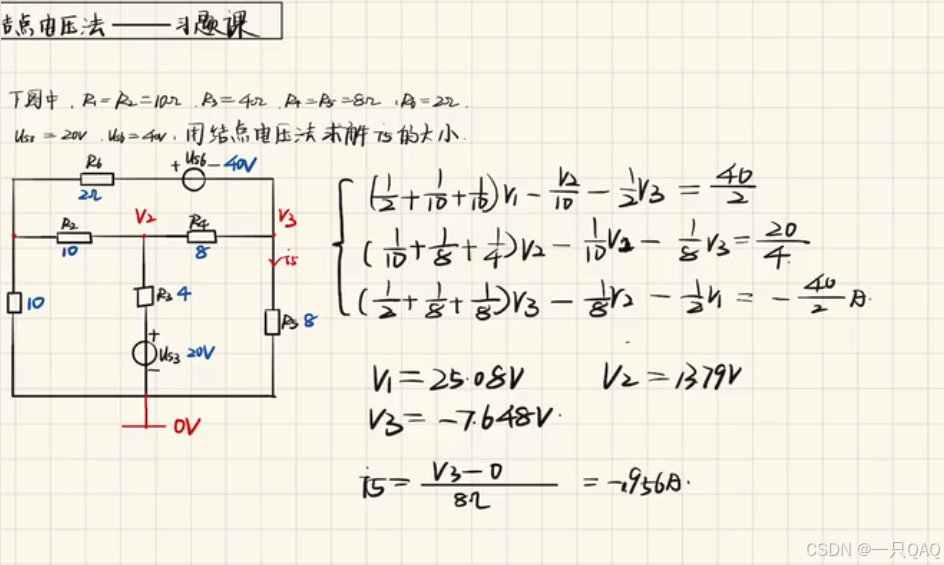 结点电压法——习题课
下图中，R1=R2=10Ω R3=4Ω R4=R5=8Ω，R6=2Ω.
Us3=20V，Us6=40V，用结点电压法求解i5的大小.
R6 + Us6 - 40V
2Ω
R2 V2 R4 V3
10 8 i5
10 R3 4 R5 8
+
Us3 20V
-
0V
(1/2+1/10+1/10)V1 - V2/10 - 1/2V3 = 40/2
(1/10+1/8+1/4)V2 - 1/10V2 - 1/8V3 = 20/4
(1/2+1/8+1/8)V3 - 1/8V2 - 1/2V1 = -40/2A.
V1=25.08V V2=1379V
V3=-7.648V.
i5= V3-0/8Ω =-.956A.
CSDN @一只QAQ